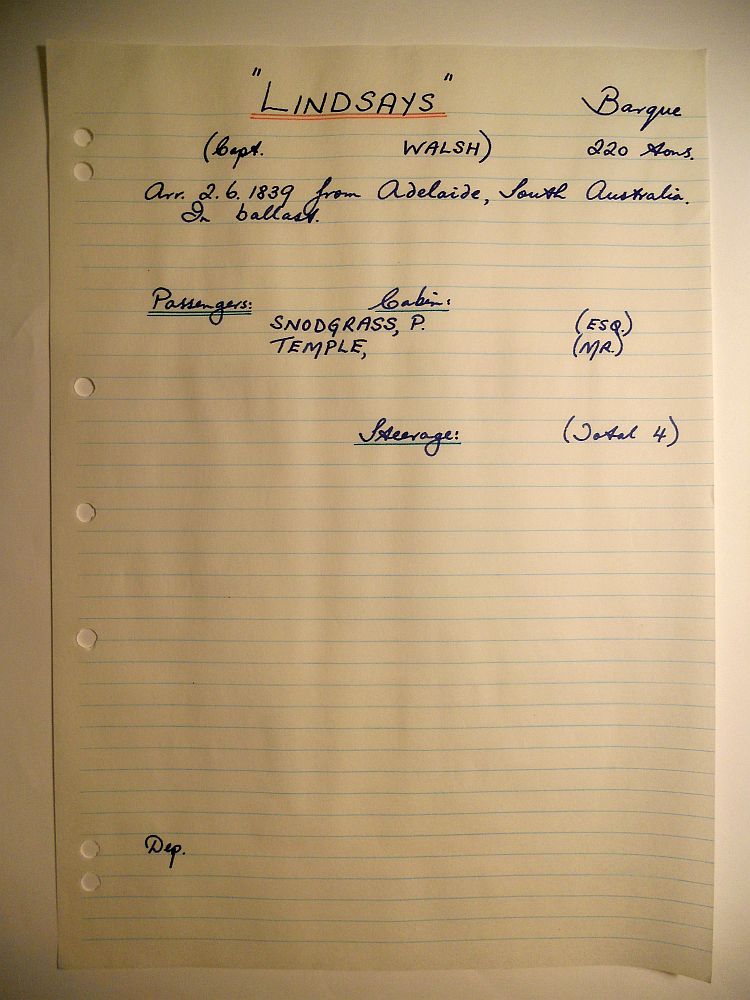 "LINDSAYS" Barque
(Capt. WALSH) 220 tons.
Arr. 2.6.1839 from Adelaide, South Australia.
In ballast.
Passengers: Cabin:
SNODGRASS, P. (ESQ.)
TEMPLE, (MR.)
Steerage: (Total 4)
Dep.